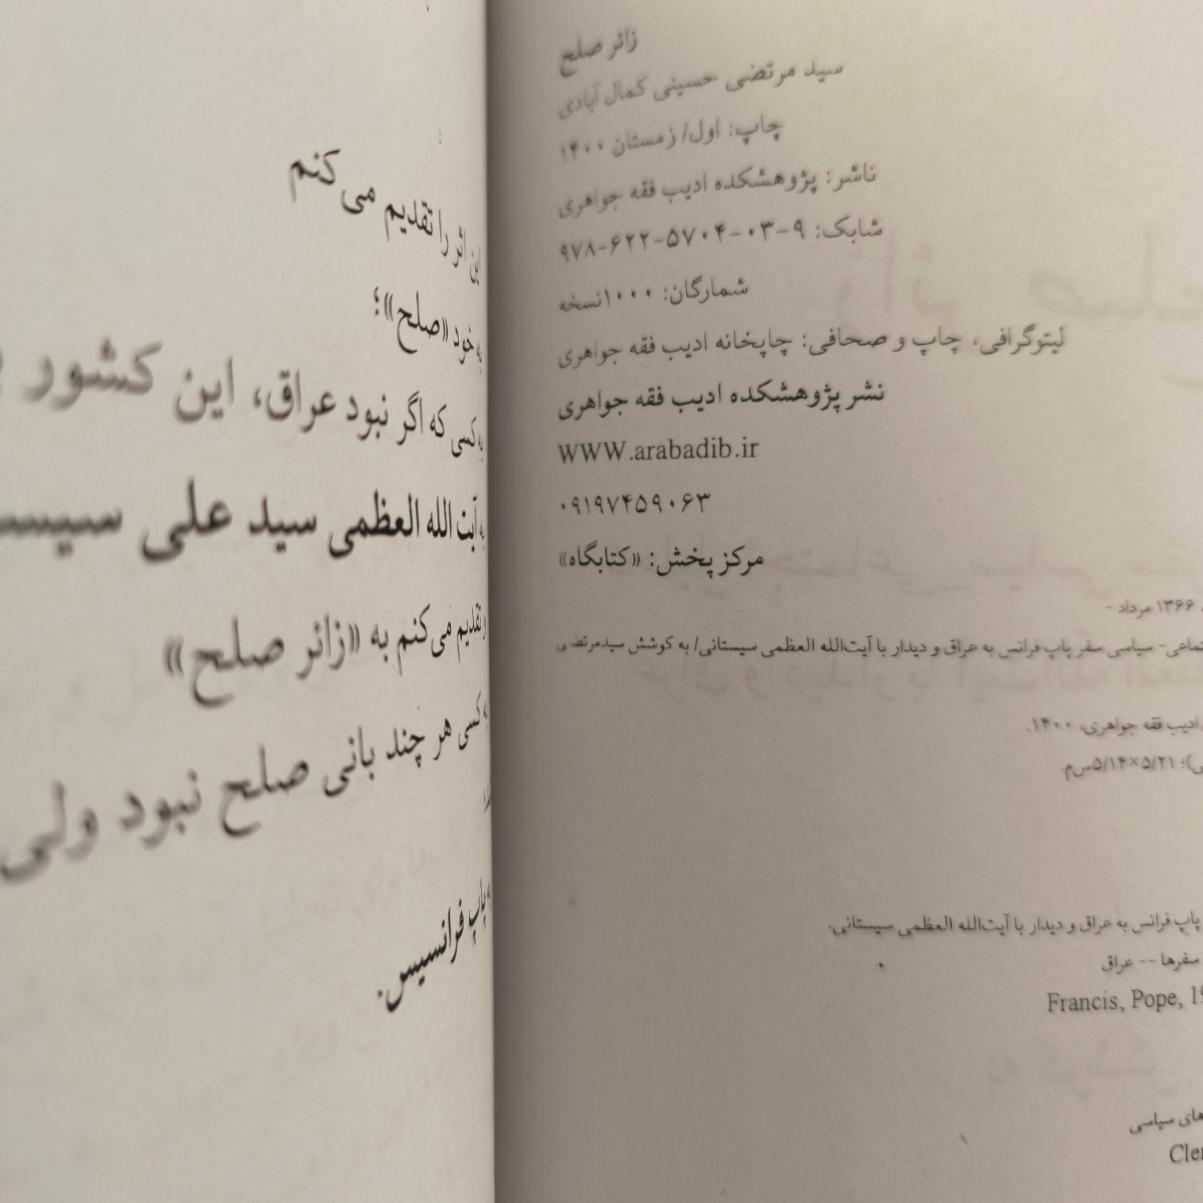 زائر صلح
سید مرتضی حسینی کمال آبادی
چاپ: اول/ زمستان ۱۴۰۰
ناشر: پژوهشکده ادیب فقه جواهری
شابک: ۹-۰۳-۵۷۰۴-۶۲۲-۹۷۸
شمارگان: ۱۰۰۰نسخه
لیتوگرافی، چاپ و صحافی: چاپخانه ادیب فقه جواهری
نشر پژوهشکده ادیب فقه جواهری
WWW.arabadib.ir
۰۹۱۹۷۴۵۹۰۶۳
مرکز پخش: «کتابگاه»
۱۳۶۶ مرداد -
سیاسی سفر پاپ فرانس به عراق و دیدار با آیت‌الله العظمی سیستانی/ به کوشش سیدمرتضی
ادیب فقه جواهری، ۱۴۰۰.
۵/۱۴×۵/۲۱س‌م.
پاپ فرانس به عراق و دیدار با آیت‌الله العظمی سیستانی.
سفرها -- عراق
Francis, Pope,
سیاسی
این اثر را تقدیم می‌کنم
به خود «صلح»؛
به کسی که اگر نبود عراق، این کشور
به آیت الله العظمی سید علی
و تقدیم می‌کنم به «زائر صلح»
به کسی هر چند بانی صلح نبود ولی
به پاپ فرانسیس.